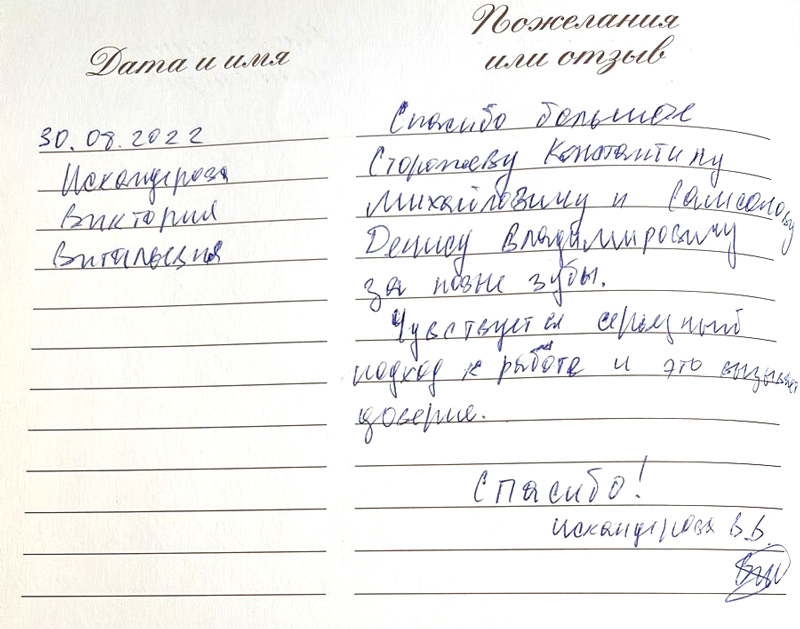 Дата и имя
30.08.2022
Искандерова
Виктория
Витальевна
Пожелания
или отзыв
Спасибо большое
Константину
Михайловичу и Самсонову
Денису Владимировичу
за новые зубы.
Чувствуется серьезный
подход к работе и это вызывает
доверие.
Спасибо!
Искандерова В.В.